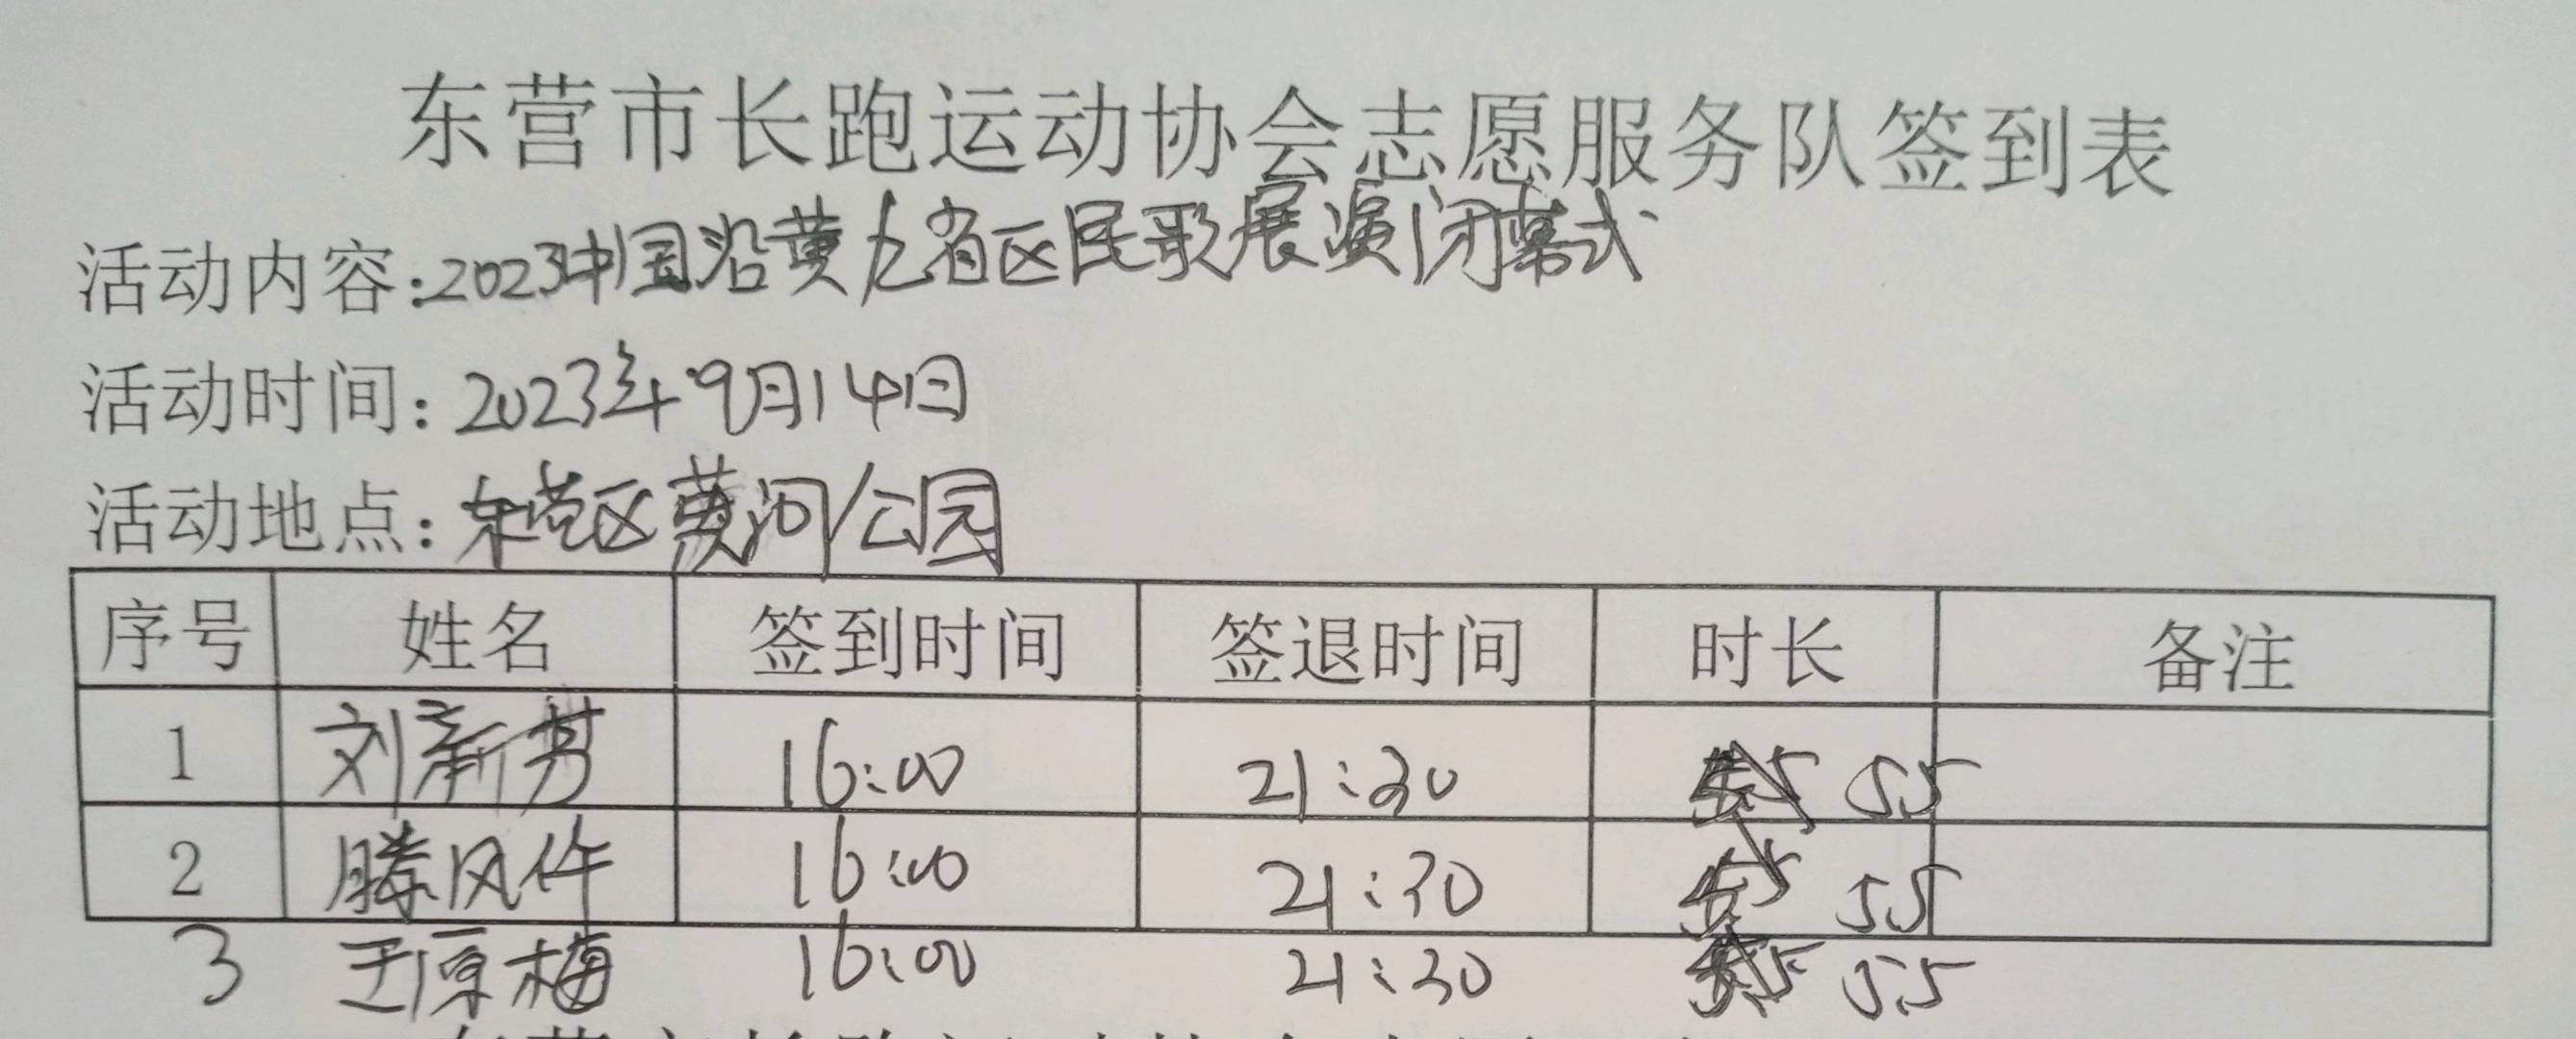 东营市长跑运动协会志愿服务队签到表
活动内容:2023中国沿黄九省区民歌展演闭幕式
活动时间:2023年9月14日
活动地点:东营区黄河公园
序号 姓名 签到时间 签退时间 时长 备注
1 刘新芳 16:00 21:30 5.5
2 滕风 16:00 21:30 5.5
3 王原梅 16:00 21:30 5.5